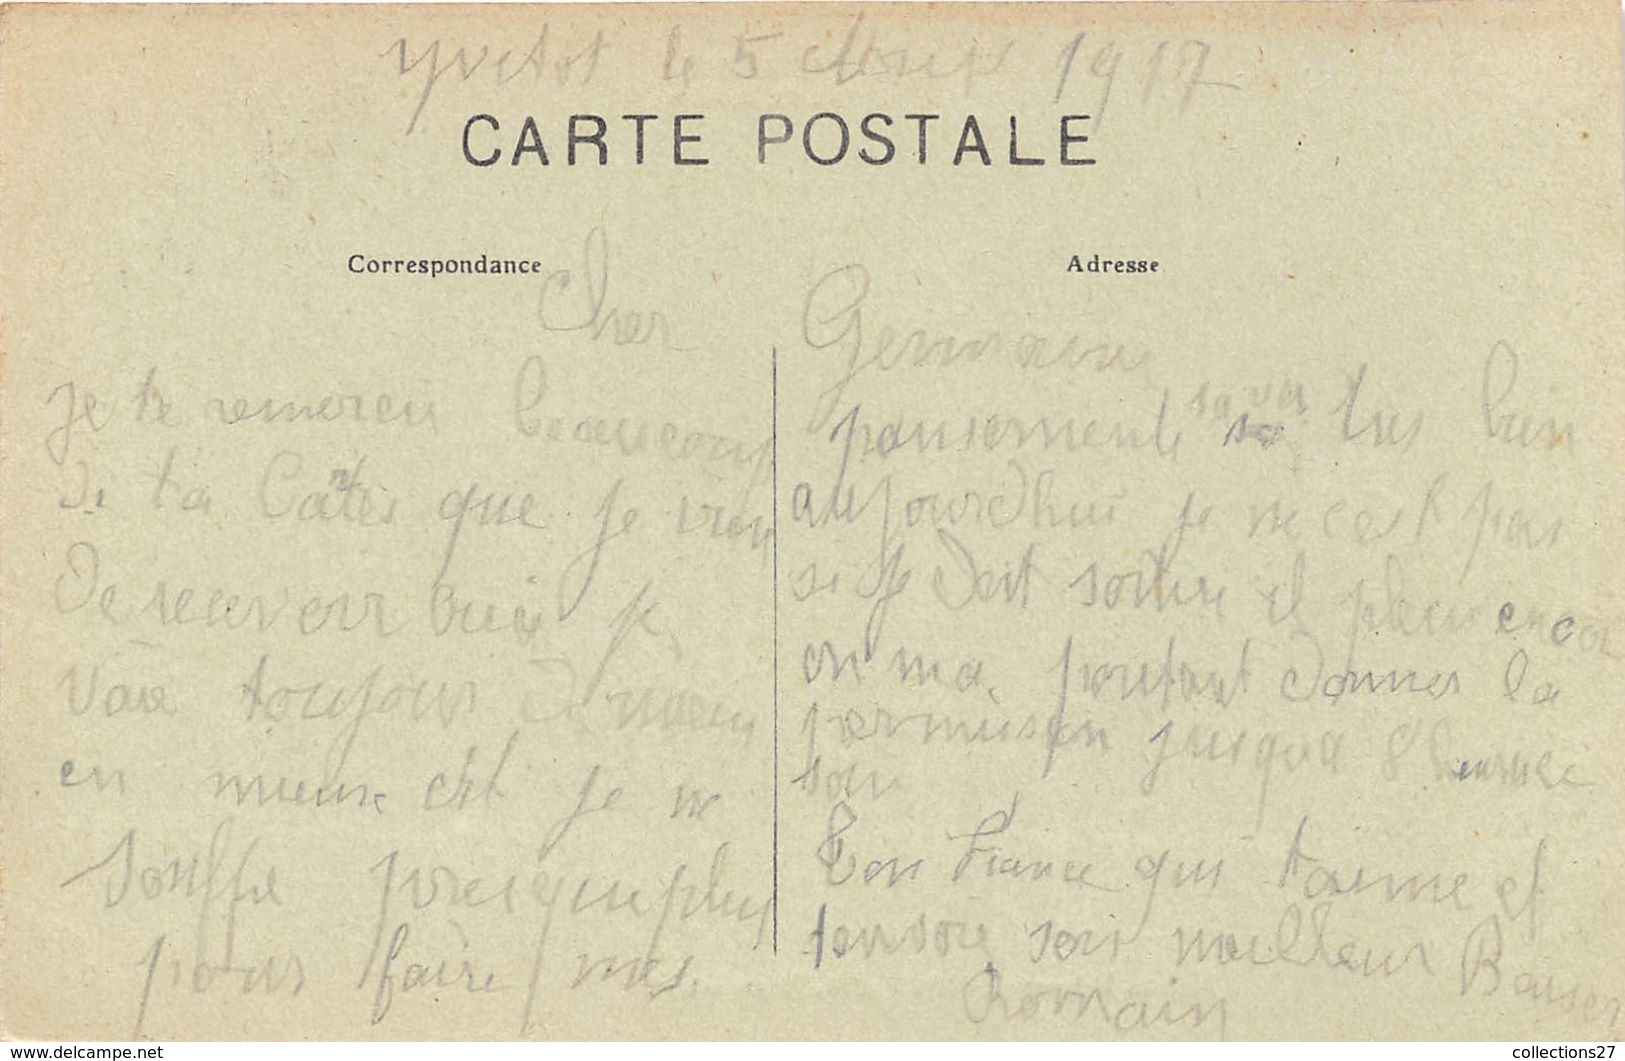 Yvetot le 5 1917
CARTE POSTALE
Correspondance
Adresse
Cher Germaine
Je te remerci beaucoup
de ta Cartes que je vien
De recevoir bien je
vais toujour De mieu
en mieux c'ést je ne
souffre presque plus
pour faire mes
pansements sa va tres bien
aujourdhui je ne cest pas
si je doit sortire il pleu encor
on ma portant donner la
permission jusqua 8 heure
soir
Ton Fiance qui taime et
tenvoie son meilleur Baiser
Romain
www.delcampe.net
collections27